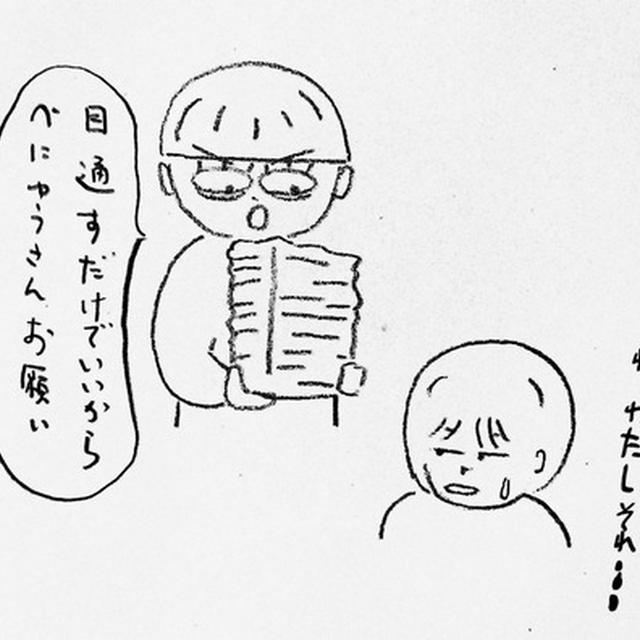 わ、わたしそれ・・・
目通すだけでいいから
べにゆうさんお願い